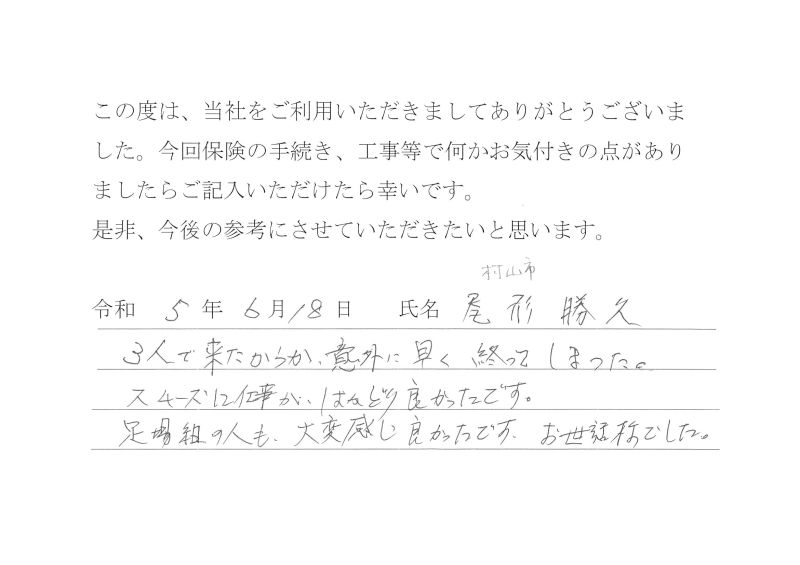 この度は、当社をご利用いただきましてありがとうございま
した。今回保険の手続き、工事等で何かお気付きの点があり
ましたらご記入いただけたら幸いです。
是非、今後の参考にさせていただきたいと思います。
村山市
令和 5 年 6 月 18 日 氏名 尾形 勝久
3人で来たからか、意外に早く終ってしまった。
スムーズに仕事が、はかどり良かったです。
足場組の人も、大変感じ良かったです、お世話様でした。